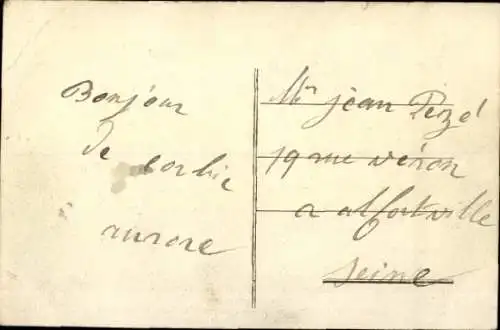 Bonjour
de corbie
aurore
Mr jean Pezé
19 rue véron
a alfortville
seine